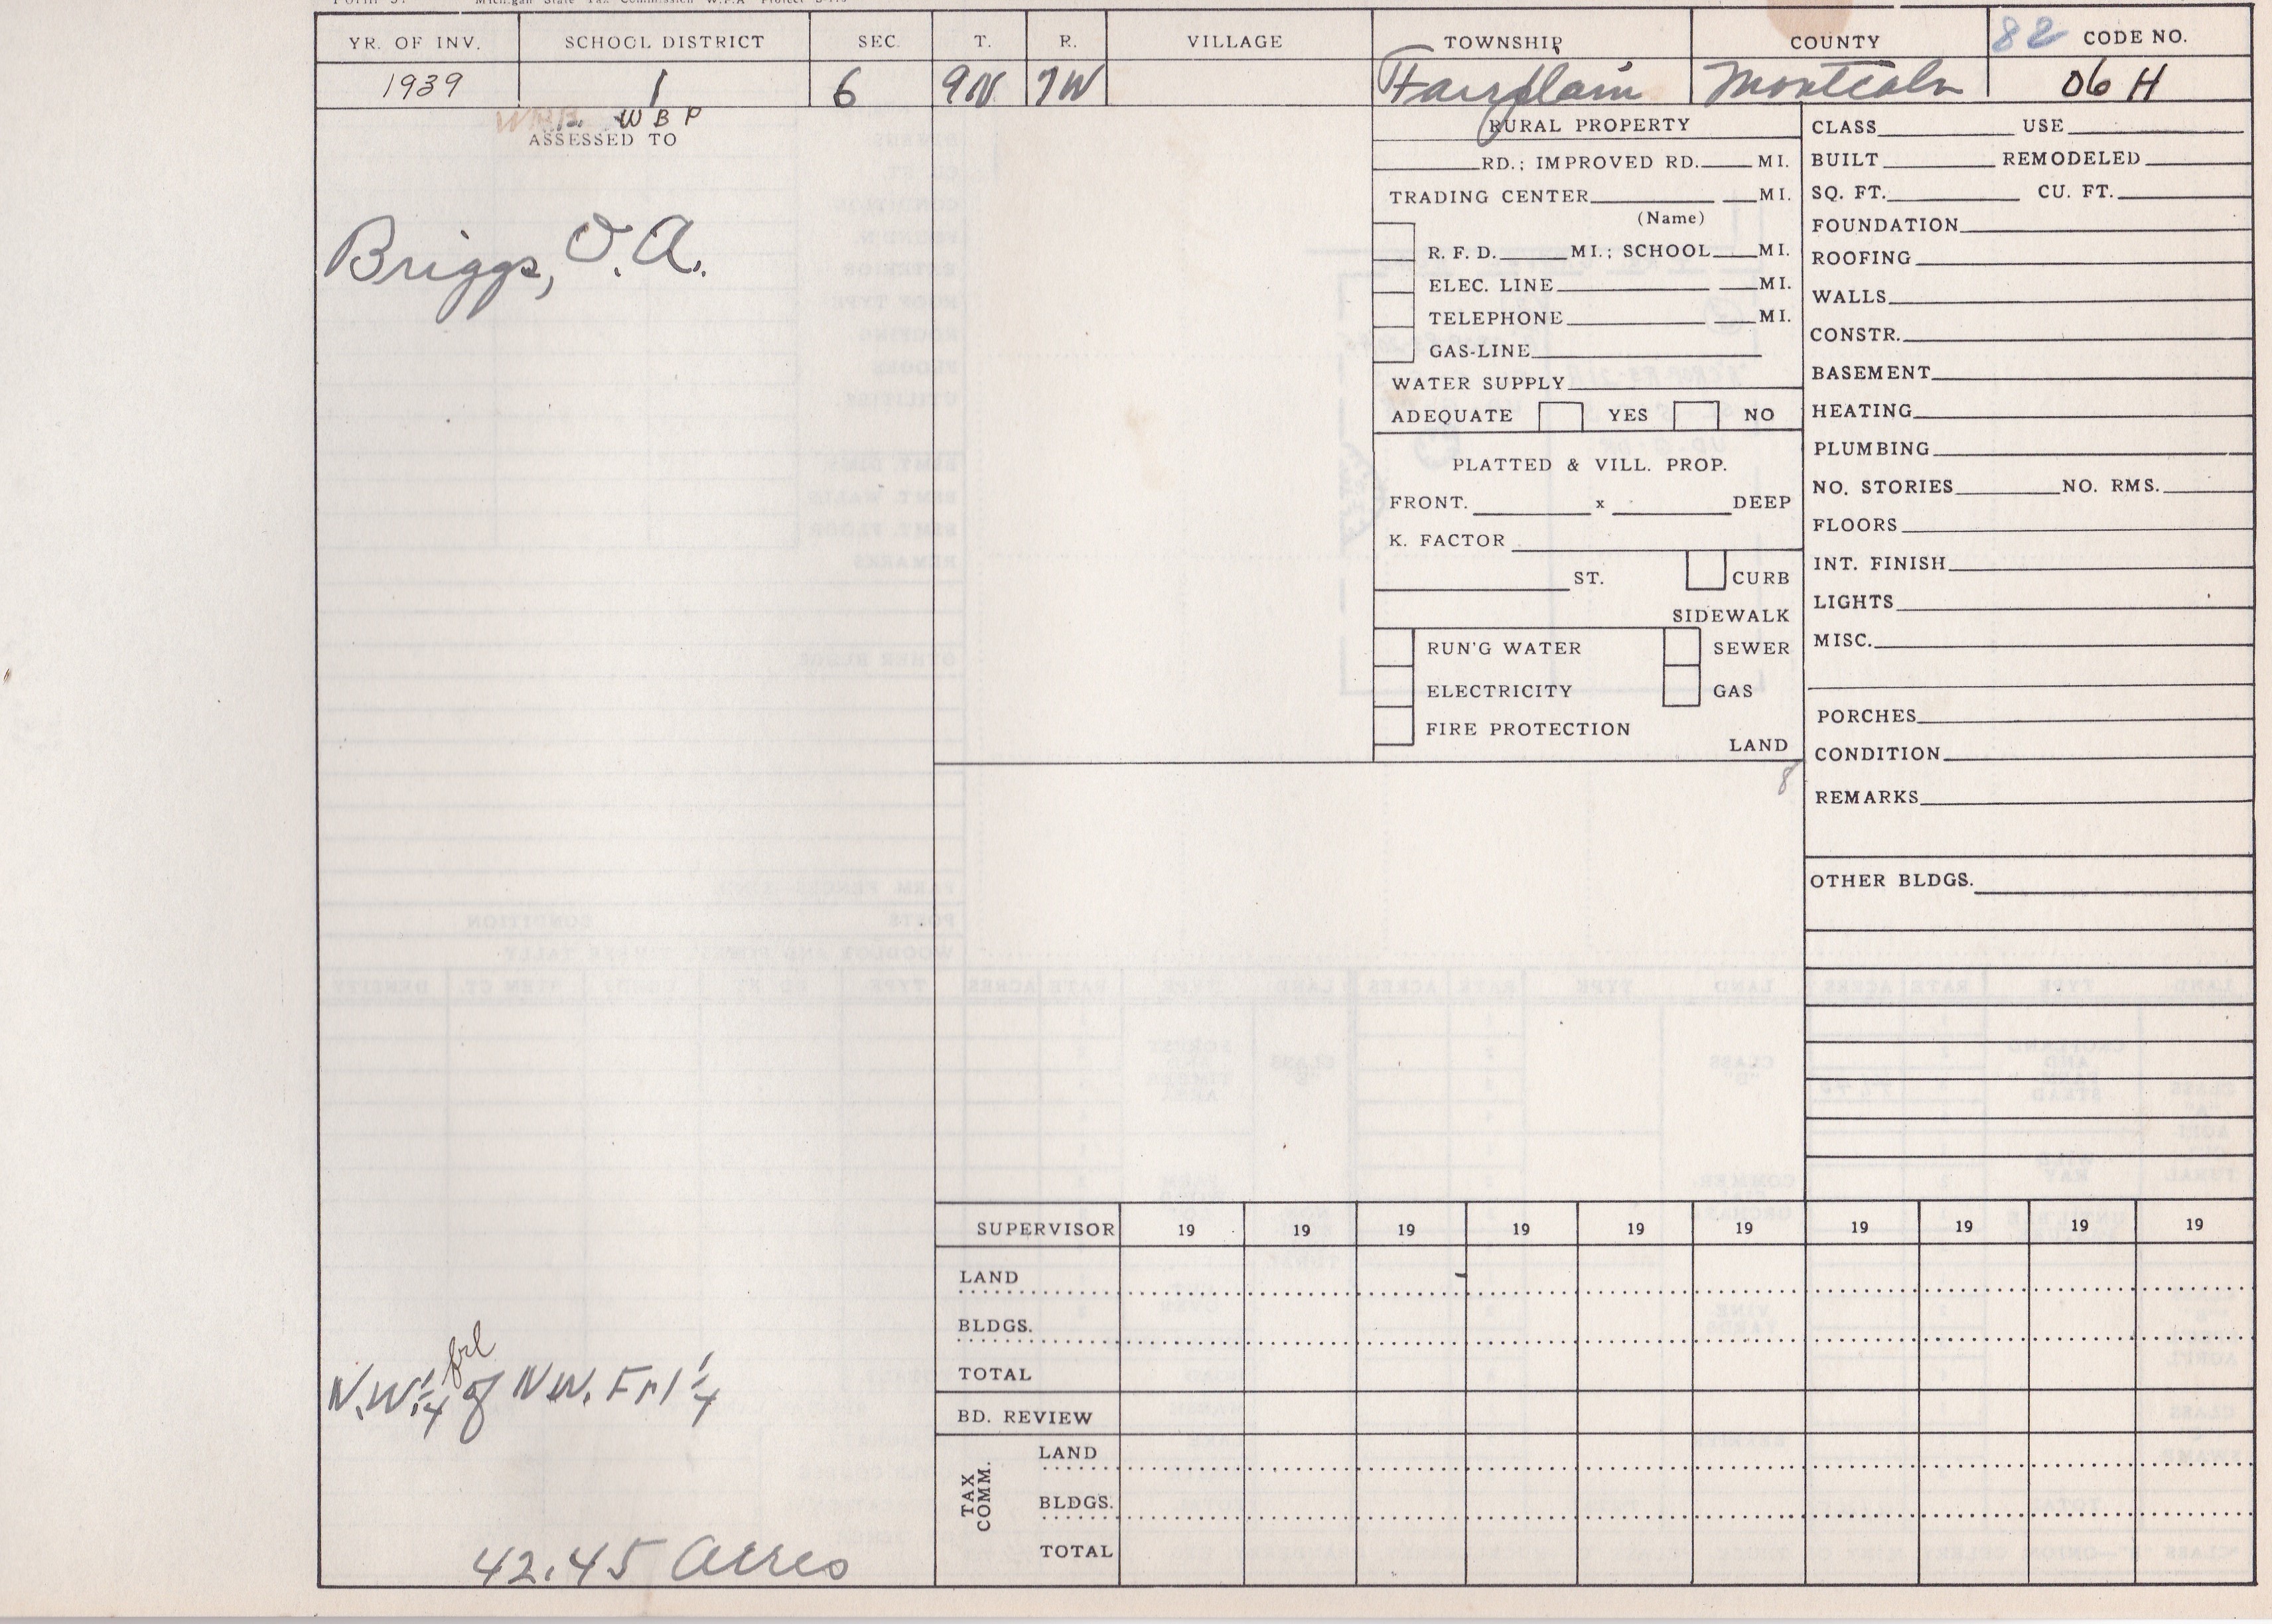 Michigan State Tax Commission W.P.A. Project
YR. OF INV. SCHOOL DISTRICT SEC. T. R. VILLAGE TOWNSHIP COUNTY 82 CODE NO.
1939 1 6 9N 7W Fairplain Montcalm 06 H
W B P
ASSESSED TO
Briggs, O.A.
N.W. 1/4 frl of N.W. Frl 1/4
42.45 Acres
RURAL PROPERTY
RD.; IMPROVED RD. MI.
TRADING CENTER MI.
(Name)
R. F. D. MI.; SCHOOL MI.
ELEC. LINE MI.
TELEPHONE MI.
GAS-LINE
WATER SUPPLY
ADEQUATE YES NO
PLATTED & VILL. PROP.
FRONT. x DEEP
K. FACTOR
ST. CURB
SIDEWALK
RUN'G WATER SEWER
ELECTRICITY GAS
FIRE PROTECTION
LAND
8
CLASS USE
BUILT REMODELED
SQ. FT. CU. FT.
FOUNDATION
ROOFING
WALLS
CONSTR.
BASEMENT
HEATING
PLUMBING
NO. STORIES NO. RMS.
FLOORS
INT. FINISH
LIGHTS
MISC.
PORCHES
CONDITION
REMARKS
OTHER BLDGS.
SUPERVISOR 19 19 19 19 19 19 19 19 19 19
LAND
BLDGS.
TOTAL
BD. REVIEW
TAX COMM.
LAND
BLDGS.
TOTAL